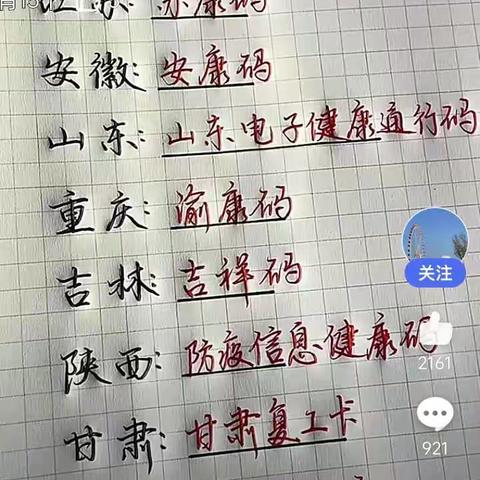 江苏: 苏康码
安徽: 安康码
山东: 山东电子健康通行码
重庆: 渝康码
吉林: 吉祥码
关注
陕西: 防疫信息健康码
2161
甘肃: 甘肃复工卡
921